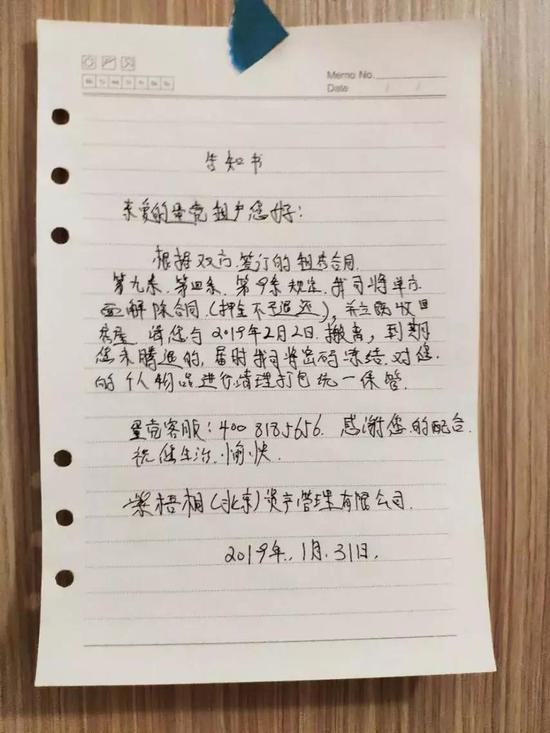 Memo No.
Date / /
告知书
亲爱的蛋壳租户您好:
根据双方签订的租房合同
第九条.第四条.第9条规定.我司将单方
面解除合同.(押金不予退还),并立即收回
房屋 请您与2019年2月2日.搬离,到期
您未腾退的,届时我司将密码冻结.对您
的个人物品进行清理打包统一保管.
蛋壳客服:400 8185656. 感谢您的配合.
祝您生活.愉快.
紫梧桐(北京)资产管理有限公司.
2019年.1月.31日.